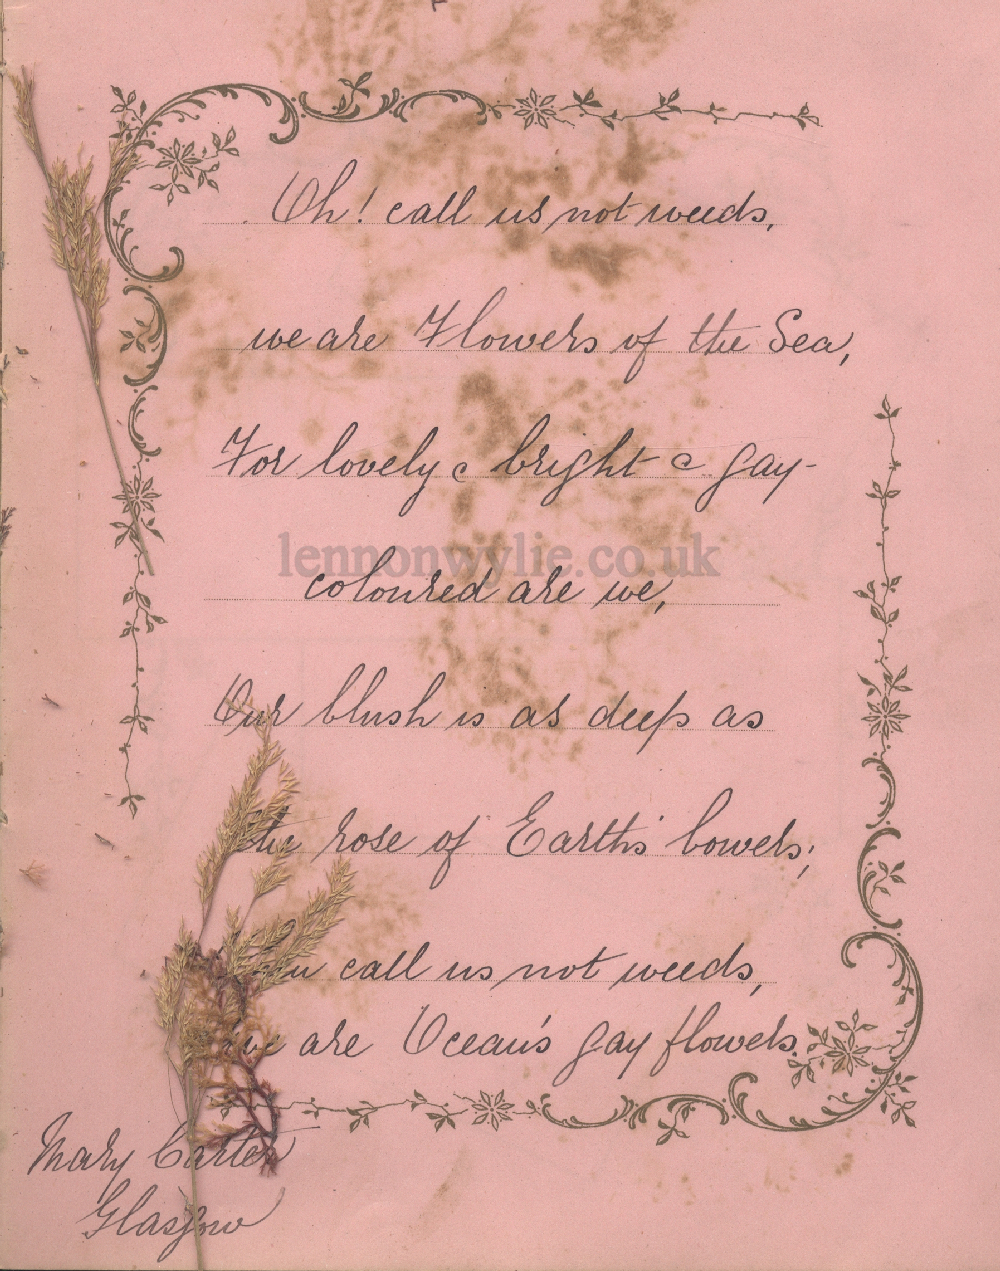 Oh! call us not weeds,
we are Flowers of the Sea,
For lovely & bright & gay-
lennonwylie.co.uk
coloured are we,
Our blush is as deep as
the rose of Earth's bowers;
call us not weeds,
we are Ocean's gay flowers.
Mary Carter
Glasgow